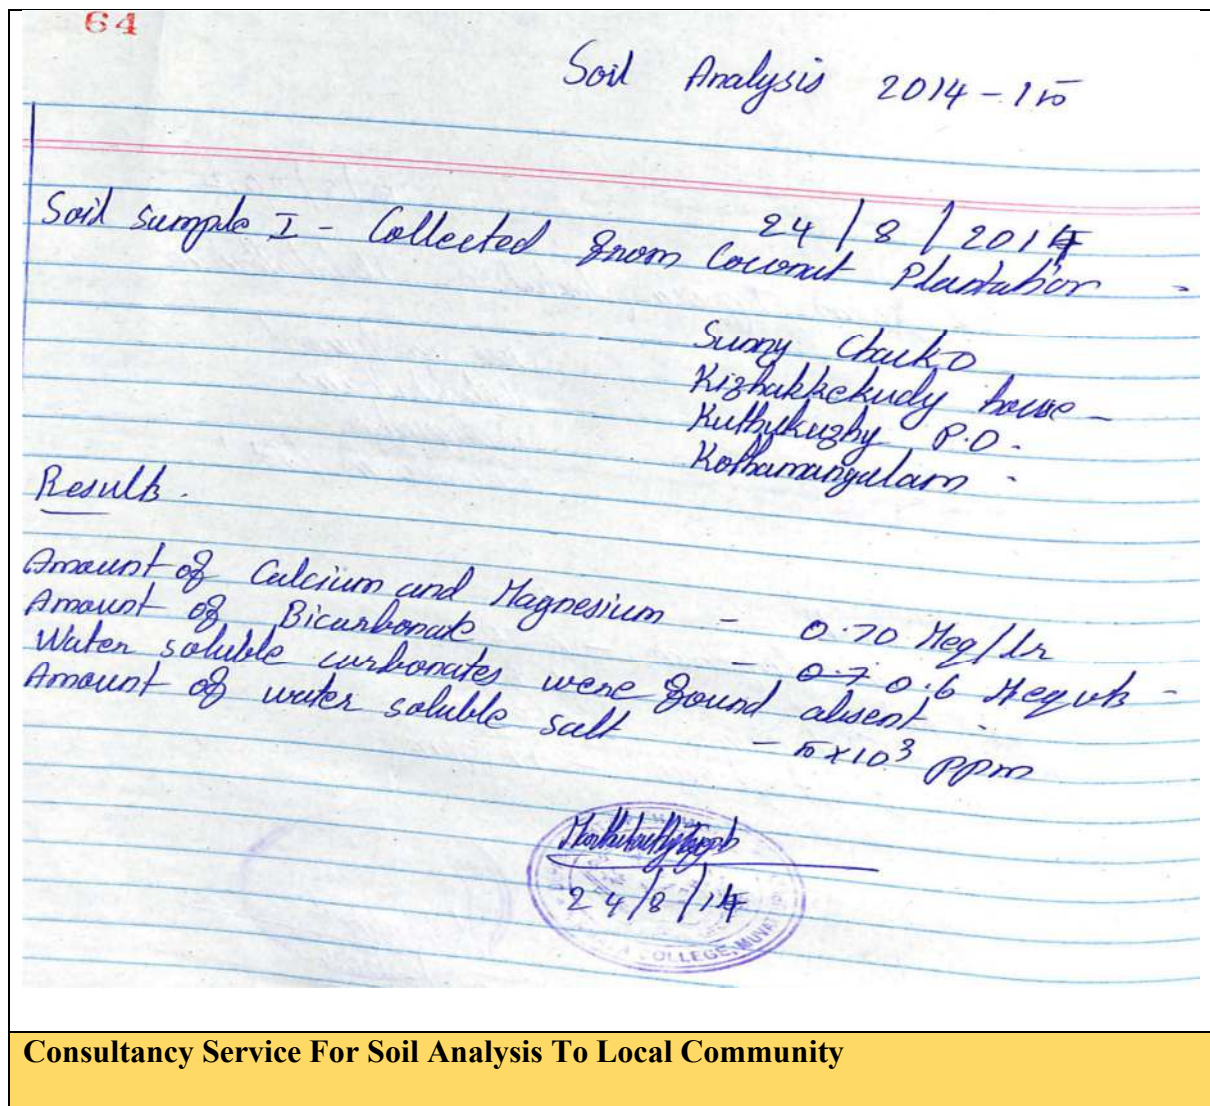 64
Soil Analysis 2014-15
24/8/2014
Soil sample I - Collected from Coconut Plantation -
Sunny Chacko
Kizhakkekudy house -
Kuthukuzhy P.O.
Kothamangalam.
Results.
Amount of Calcium and Magnesium - 0.70 Meq/ltr
Amount of Bicarbonate - 0.7 0.6 Meq
Water soluble carbonates were found absent.
Amount of water soluble salt - 5x10³ ppm
24/8/14
COLLEGE,
Consultancy Service For Soil Analysis To Local Community